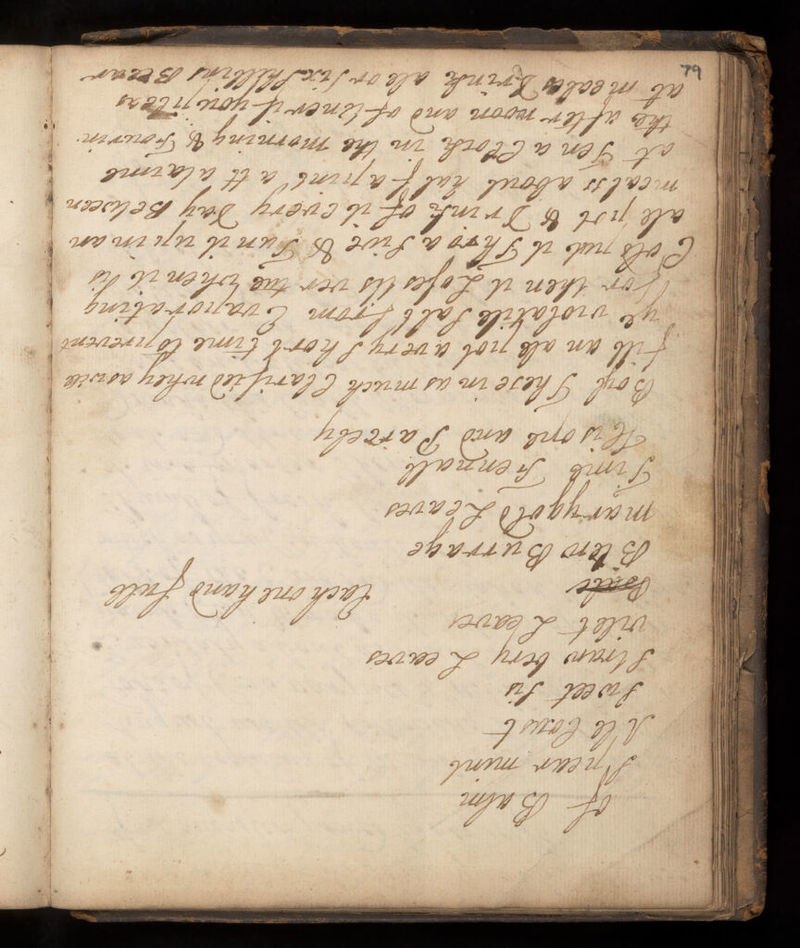 79
of Balm
Spear mint
Ale Coxst
Sweet Sis
Straw bery Leaves
vilet Leaves
Each one hand full
Blew Burrage
marygold Leaves
Time Fennall
Hysope and Parcely
Boyl These in as much Clarified whey as will
fill an ale pot a very Short time to prevent
ye violatile Salt from Evaporating
for then it Loses its vertue when it is
Cold put it Thro a Sive & Tun it up in an
ale pot & Drink of it every Day Between
meals about half a pint att a time
at Ten a Clock in the morning & Four in
the after noon and oftener if you pleas
at meales Drink ale or Six Shillins Bear